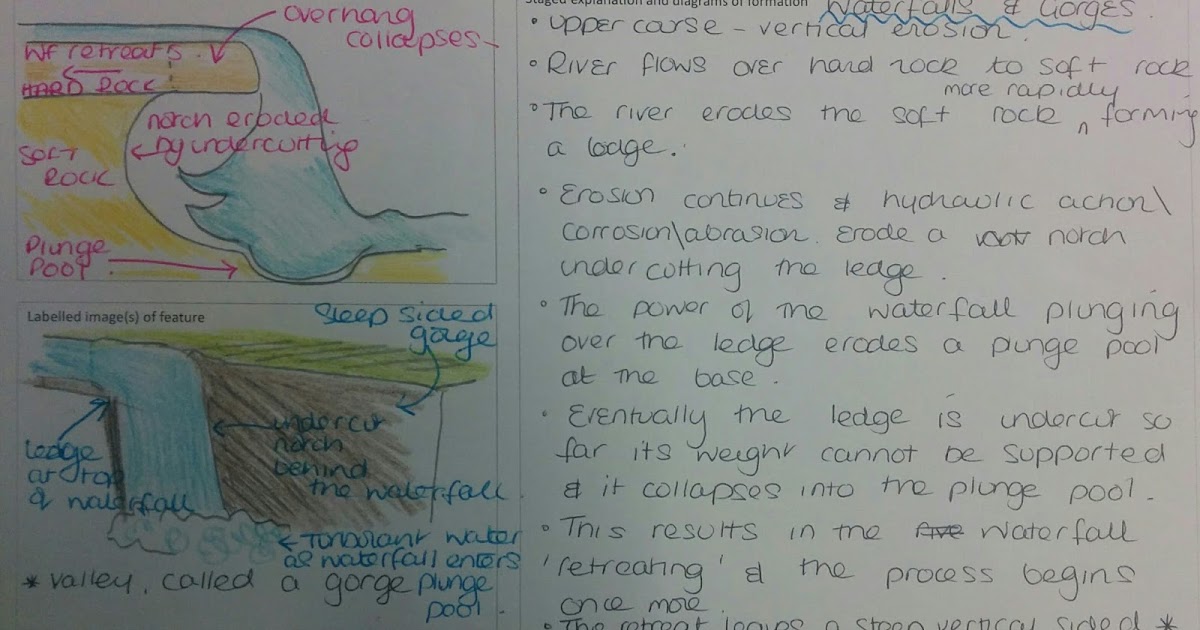 overhang
collapses
WF retreats
HARD ROCK
notch eroded
by undercutting
SOFT
ROCK
Plunge
POOl
Labelled image(s) of feature
Steep sided
gorge
undercut
notch
behind
the waterfall.
Ledge
at top
of waterfall
Turbulant water
as waterfall enters
plunge
pool.
* valley, called a gorge
Staged explanation and diagrams of formation
Waterfalls & Gorges.
• Upper carse – vertical erosion.
• River flows over hard rock to soft rock
more rapidly
• The river erodes the soft rock ∧ forming
a ledge.
• Erosion continues & hydraulic action\
corrosion\abrasion. Erode a notch
undercutting the ledge.
• The power of the waterfall plunging
over the ledge erodes a plunge pool
at the base.
• Eventually the ledge is undercut so
far its weight cannot be supported
& it collapses into the plunge pool.
• This results in the waterfall
'retreating' & the process begins
once more.
• The retreat leaves a steep vertical sided *